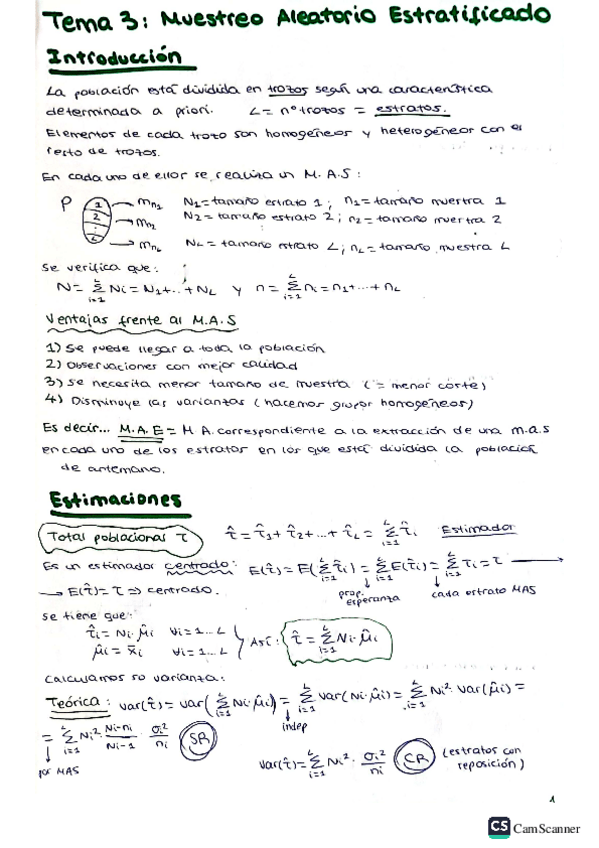 Tema 3: Muestreo Aleatorio Estratificado
Introducción
La población está dividida en trozos según una característica
determinada a priori. L = nº trozos = estratos.
Elementos de cada trozo son homogéneos y heterogéneos con el
resto de trozos.
En cada uno de ellos se realiza un M.A.S:
P 1 mn₁ N₁=tamaño estrato 1; n₁=tamaño muestra 1
2 mn₂ N₂=tamaño estrato 2; n₂=tamaño muestra 2
L mn_L N_L=tamaño estrato L; n_L=tamaño muestra L
Se verifica que:
N = Σ_{i=1}^{L} Ni = N₁+...+N_L y n = Σ_{i=1}^{L} ni = n₁+...+n_L
Ventajas frente al M.A.S
1) Se puede llegar a toda la población
2) Observaciones con mejor calidad
3) Se necesita menor tamaño de muestra (= menor coste)
4) Disminuye las varianzas (hacemos grupos homogéneos)
Es decir... M.A.E = M.A. correspondiente a la extracción de una m.a.s
en cada uno de los estratos en los que está dividida la población
de antemano.
Estimaciones
Total poblacional τ τ̂ = τ̂₁+τ̂₂+...+τ̂_L = Σ_{i=1}^{L} τ̂i Estimador
Es un estimador centrado: E(τ̂) = E(Σ_{i=1}^{L} τ̂i) = Σ_{i=1}^{L} E(τ̂i) = Σ_{i=1}^{L} τi = τ →
→ E(τ̂) = τ ⇒ centrado. prop. esperanza cada estrato MAS
Se tiene que:
τ̂i = Ni·μ̂i ∀i=1...L
μ̂i = x̄i ∀i=1...L Así: τ̂ = Σ_{i=1}^{L} Ni·μ̂i
Calculamos su varianza:
Teórica: var(τ̂) = var(Σ_{i=1}^{L} Ni·μ̂i) = Σ_{i=1}^{L} var(Ni·μ̂i) = Σ_{i=1}^{L} Ni²·var(μ̂i) =
indep
= Σ_{i=1}^{L} Ni²·(Ni-ni)/(Ni-1)·σi²/ni SR
por MAS
var(τ̂) = Σ_{i=1}^{L} Ni²·σi²/ni CR (estratos con
reposición)
1
CS CamScanner